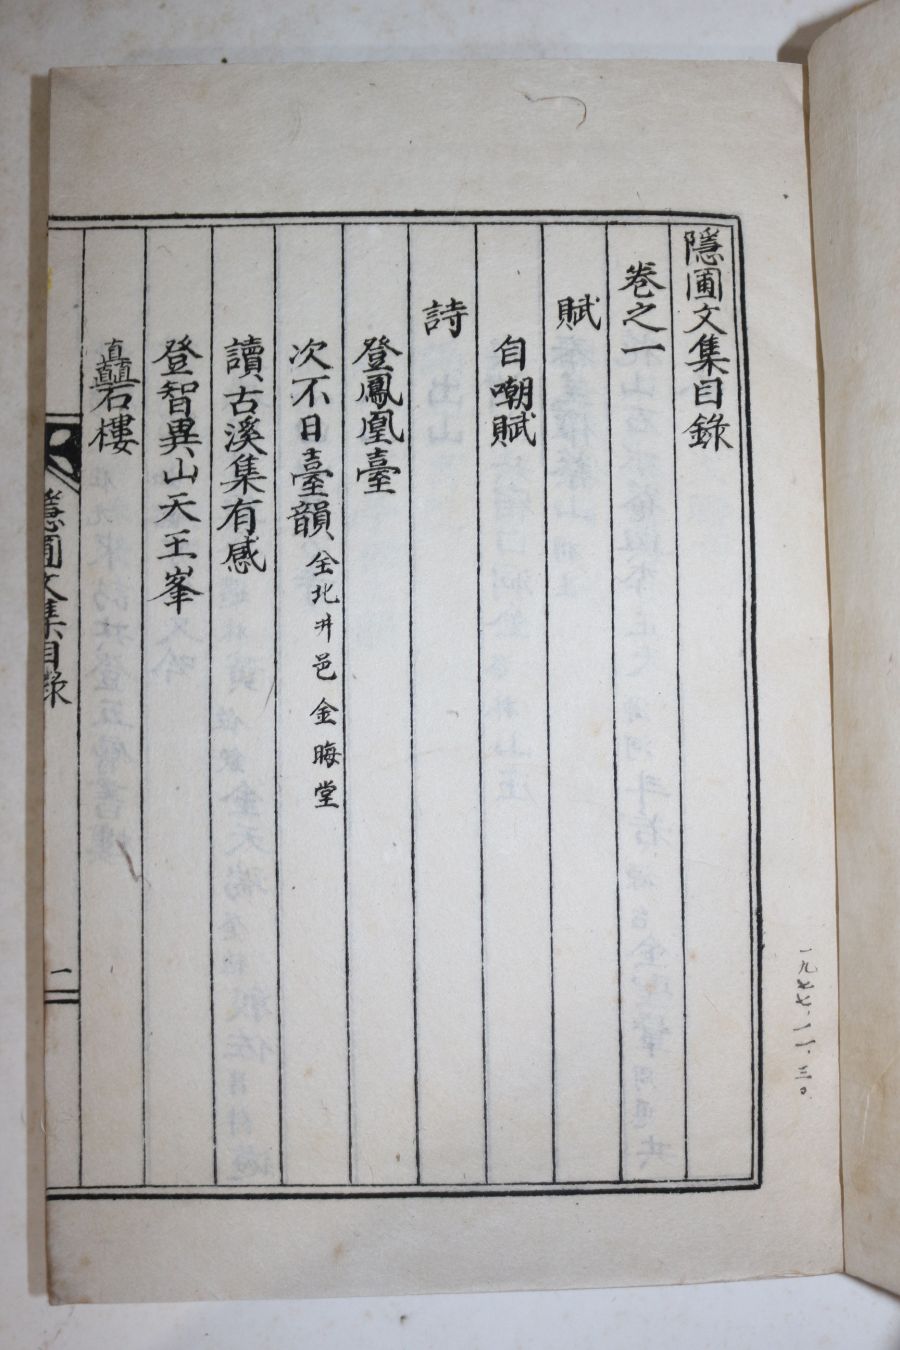 隱圃文集目錄
卷之一
賦
自嘲賦
詩
登鳳凰臺
次不日臺韻 全北井邑金晦堂
讀古溪集有感
登智異山天王峯
矗石樓
隱圃文集目錄
一九七七.一一.三〇